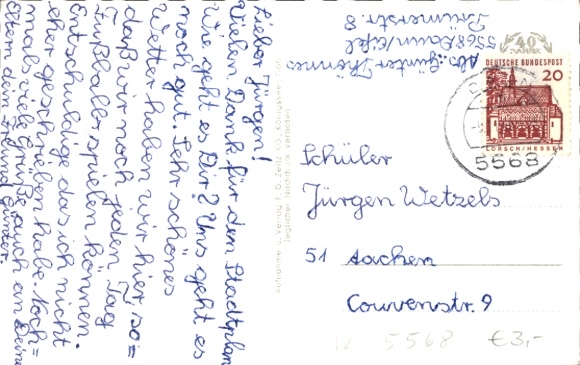 Lieber Jürgen!
Vielen Dank für den Stadtplan
Wie geht es Dir? Uns geht es
noch gut. Sehr schönes
Wetter haben wir hier, so=
daß wir noch jeden Tag
Fußball spielen können.
Entschuldige das ich nicht
eher geschrieben habe. Noch=
mals viele Grüße auch an Deine
Eltern dein Freund Günter.
Abs.: Günter Thönnes
5568 Daun/Eifel
8
40
DEUTSCHE BUNDESPOST
20
LORSCH/HESSEN
5568
Schüler
Jürgen Wetzels
51 Aachen
Couvenstr. 9
Aufnahme u. Verlag F. G. Zeitz KG., Königsee
Jeglicher Nachdruck verboten
W 5568 €3,-